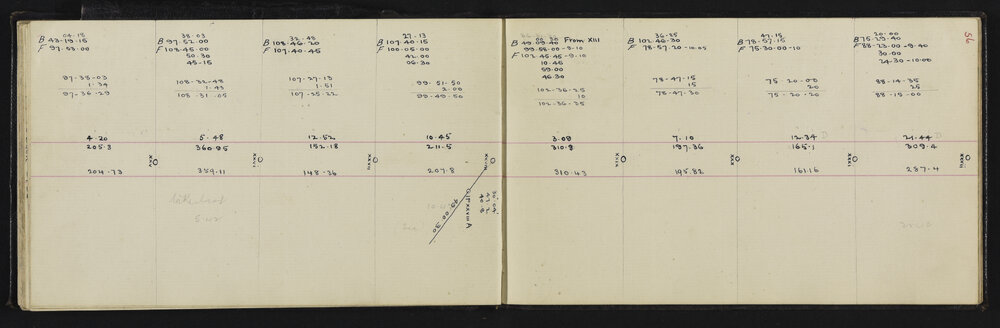 04-15
B 43-19-15
F 97-53-00
97-38-03
1-34
97-36-29
4.20
205.3
204.73
38-03
B 97-52-00
F 108-45-00
50-30
45-15
108-32-48
1-43
108-31-05
5.48
360.85
359.11
XXVI
32-48
B 108-46-20
F 107-40-45
107-27-13
1-51
107-25-22
12.52
152.18
148.36
XXVII
27-13
B 107-40-15
F 100-05-00
42-00
05-30
99-51-50
2-00
99-49-50
10.45
211.5
207.8
XXVIII
XXVIII A
45 00 30
From XIII
B 49-09-40
99-58-00-9-10
F 102-45-45-9-10
10-45
59-00
46-30
102-36-25
10
102-36-35
3.09
310.8
310.43
XXIX
36-25
B 102-46-30
F 78-57-20-10-05
78-47-15
15
78-47-30
7.10
197.36
195.82
XXX
47-15
B 78-57-15
F 75-30-00-10
75-20-00
20
75-20-20
12.34
165.1
161.16
XXXI
56
20-00
B 75-29-40
F 88-23-00-9-40
30-00
24-30-10-00
88-14-35
25
88-15-00
21.44
309.4
287.4
XXXII